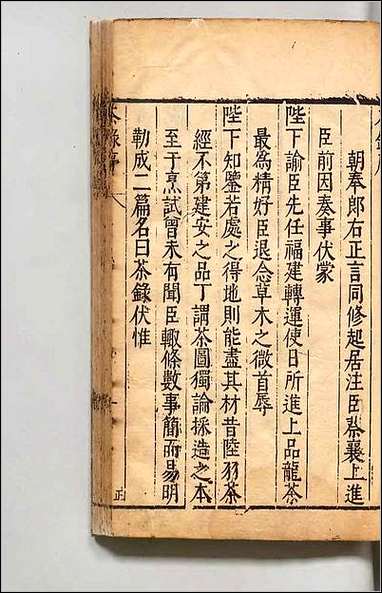 朝奉郎右正言同修起居注臣蔡襄上進
臣前因奏事伏蒙
陛下諭臣先任福建轉運使日所進上品龍茶
最為精好臣退念草木之微首辱
陛下知鑒若處之得地則能盡其材昔陸羽茶
經不第建安之品丁謂茶圖獨論採造之本
至于烹試曾未有聞臣輙條數事簡而易明
勒成二篇名曰茶錄伏惟
茶錄序
一